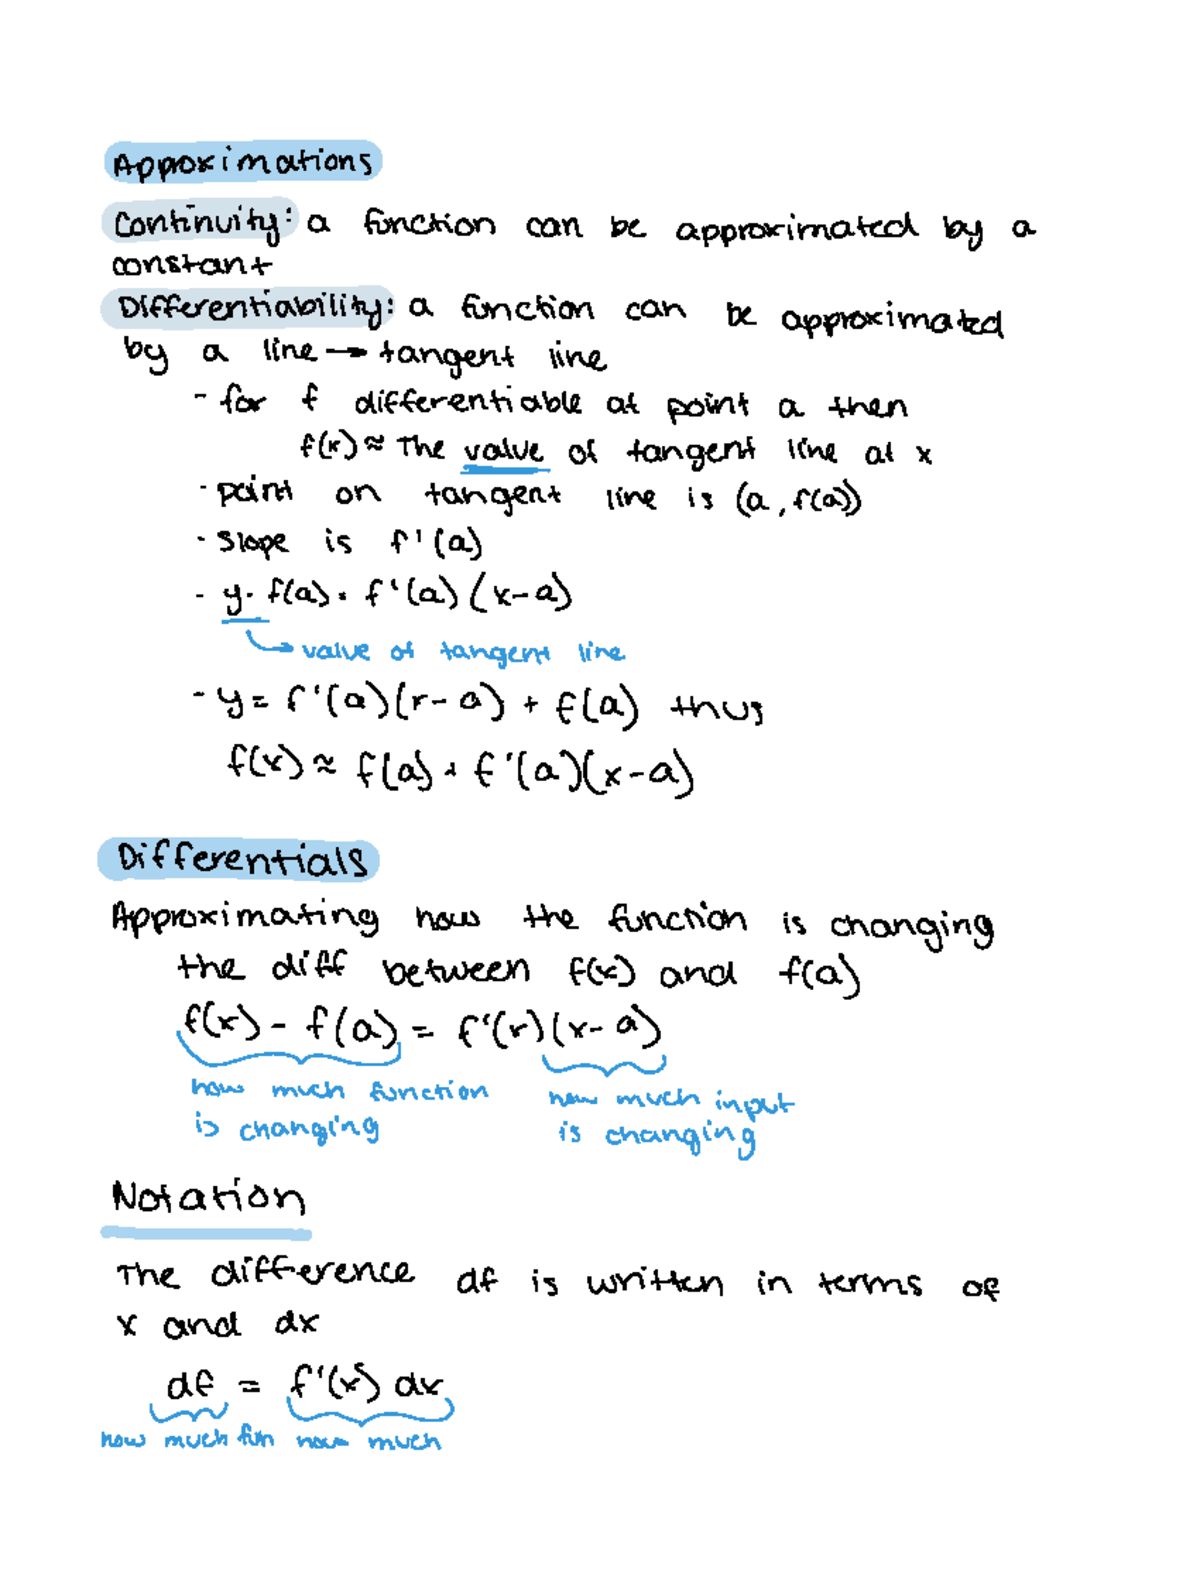 Approximations
Continuity: a function can be approximated by a
constant
Differentiability: a function can be approximated
by a line → tangent line
- for f differentiable at point a then
f(x) ≈ The value of tangent line at x
- point on tangent line is (a, f(a))
- slope is f'(a)
- y - f(a) = f'(a) (x-a)
→ value of tangent line
- y = f'(a)(x-a) + f(a) thus
f(x) ≈ f(a) + f'(a)(x-a)
Differentials
Approximating how the function is changing
the diff between f(x) and f(a)
f(x) - f(a) = f'(x)(x-a)
how much function how much input
is changing is changing
Notation
The difference df is written in terms of
x and dx
df = f'(x) dx
how much fun how much